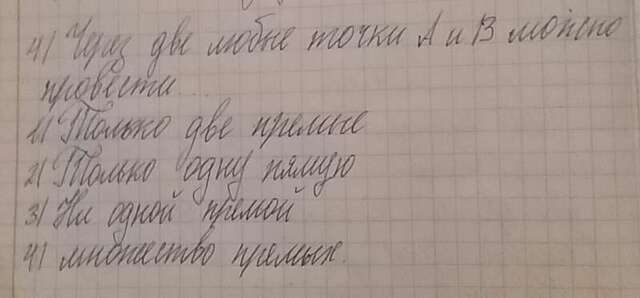 4) Через две любые точки А и В можно
провести...
1) Только две прямые
2) Только одну прямую
3) Ни одной прямой
4) множество прямых.